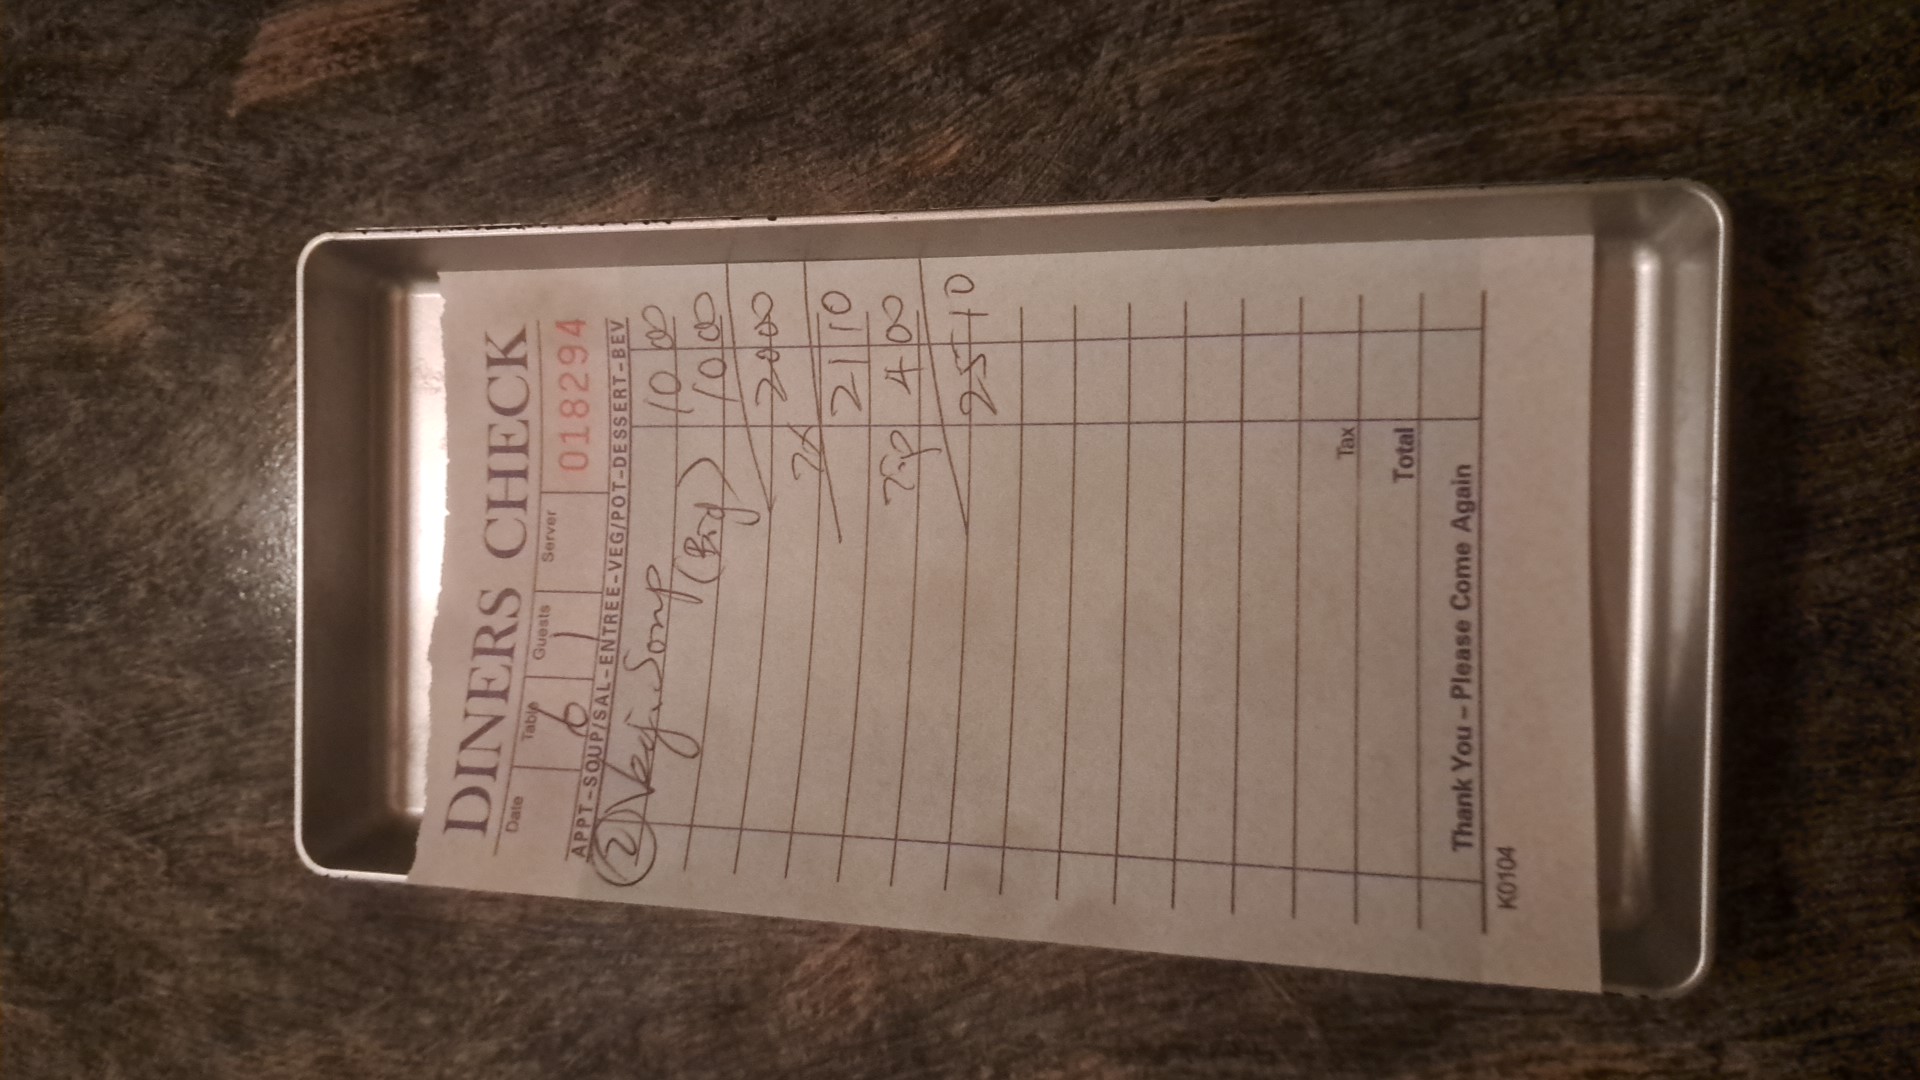 DINERS CHECK
Date Table Guests Server
6 1 018294
APPT-SOUP/SAL-ENTREE-VEG/POT-DESSERT-BEV
2 10 00
(Big) 10 00
20 00
TX
21 10
Tip 4 00
25 10
Tax
Total
Thank You – Please Come Again
K0104